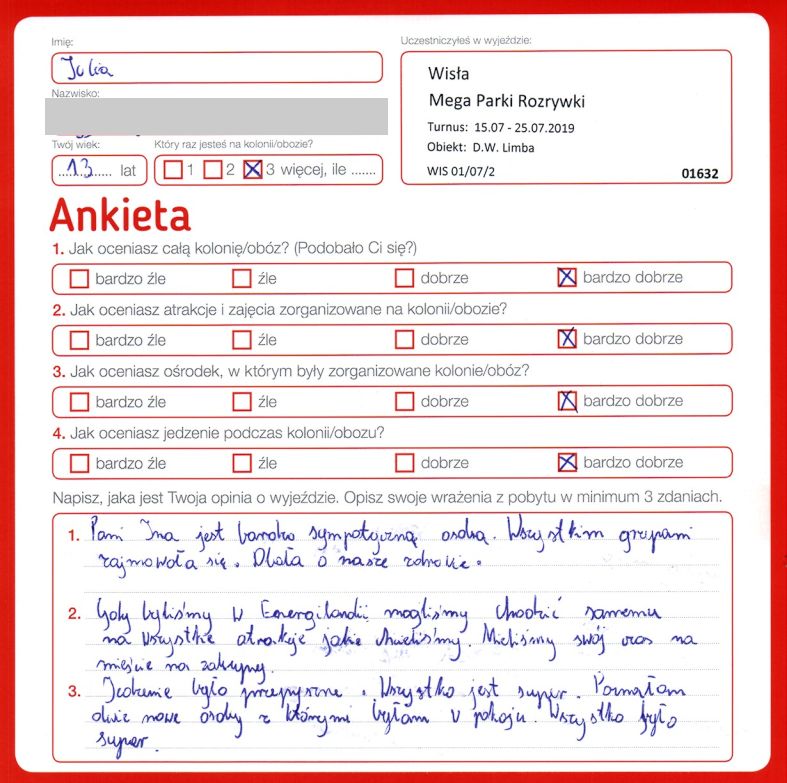 Imię:
Julia
Nazwisko:
Twój wiek:
13 lat
Który raz jesteś na kolonii/obozie?
1 2 3 więcej, ile .......
Uczestniczyłeś w wyjeździe:
Wisła
Mega Parki Rozrywki
Turnus: 15.07 - 25.07.2019
Obiekt: D.W. Limba
WIS 01/07/2 01632
Ankieta
1. Jak oceniasz całą kolonię/obóz? (Podobało Ci się?)
bardzo źle źle dobrze bardzo dobrze
2. Jak oceniasz atrakcje i zajęcia zorganizowane na kolonii/obozie?
bardzo źle źle dobrze bardzo dobrze
3. Jak oceniasz ośrodek, w którym były zorganizowane kolonie/obóz?
bardzo źle źle dobrze bardzo dobrze
4. Jak oceniasz jedzenie podczas kolonii/obozu?
bardzo źle źle dobrze bardzo dobrze
Napisz, jaka jest Twoja opinia o wyjeździe. Opisz swoje wrażenia z pobytu w minimum 3 zdaniach.
1. Pani Ina jest bardzo sympatyczną osobą. Wszystkim grupami
zajmowała się. Dbała o nasze zdrowie.
2. Gdy byliśmy w Energilandii mogliśmy chodzić samemu
na wszystkie atrakcje jakie chcieliśmy. Mieliśmy swój czas na
miejscu na zakupy.
3. Jedzenie było przepyszne. Wszystko jest super. Poznałam
dwie nowe osoby z którymi byłam w pokoju. Wszystko było
super.